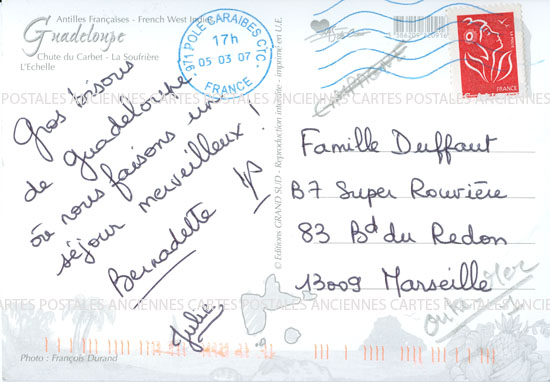 Antilles Françaises - French West Indies
Guadeloupe
Chute du Carbet - La Soufrière
L'Echelle
971 POLE CARAIBES CTC.
17h
05 03 07
FRANCE
FRANCE
POSTALES ANCIENNES CARTES POSTALES ANCIENNES CARTES POSTALES ANCIENNES
Gros bisous
de Guadeloupe
où nous faisons un
séjour merveilleux !
Bernadette
Julie
© Editions GRAND SUD - Reproduction interdite - imprimé en U.E.
Famille Duffaut
B7 Super Rouvière
83 Bd du Redon
13009 Marseille
Outre Mer
CARTES POSTALES ANCIENNES CARTES POSTALES ANCIENNES CARTES POSTALES
Photo : François Durand